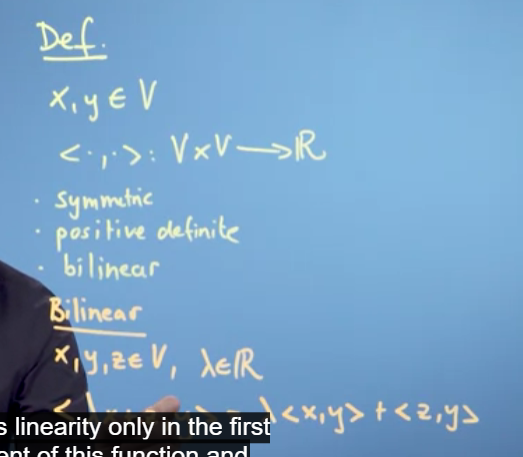 Def.
x, y ∈ V
<·,·>: V×V ⟶ ℝ
· symmetric
· positive definite
· bilinear
Bilinear
x, y, z ∈ V, λ ∈ ℝ
λ<x,y> + <z,y>
s linearity only in the first
ent of this function and